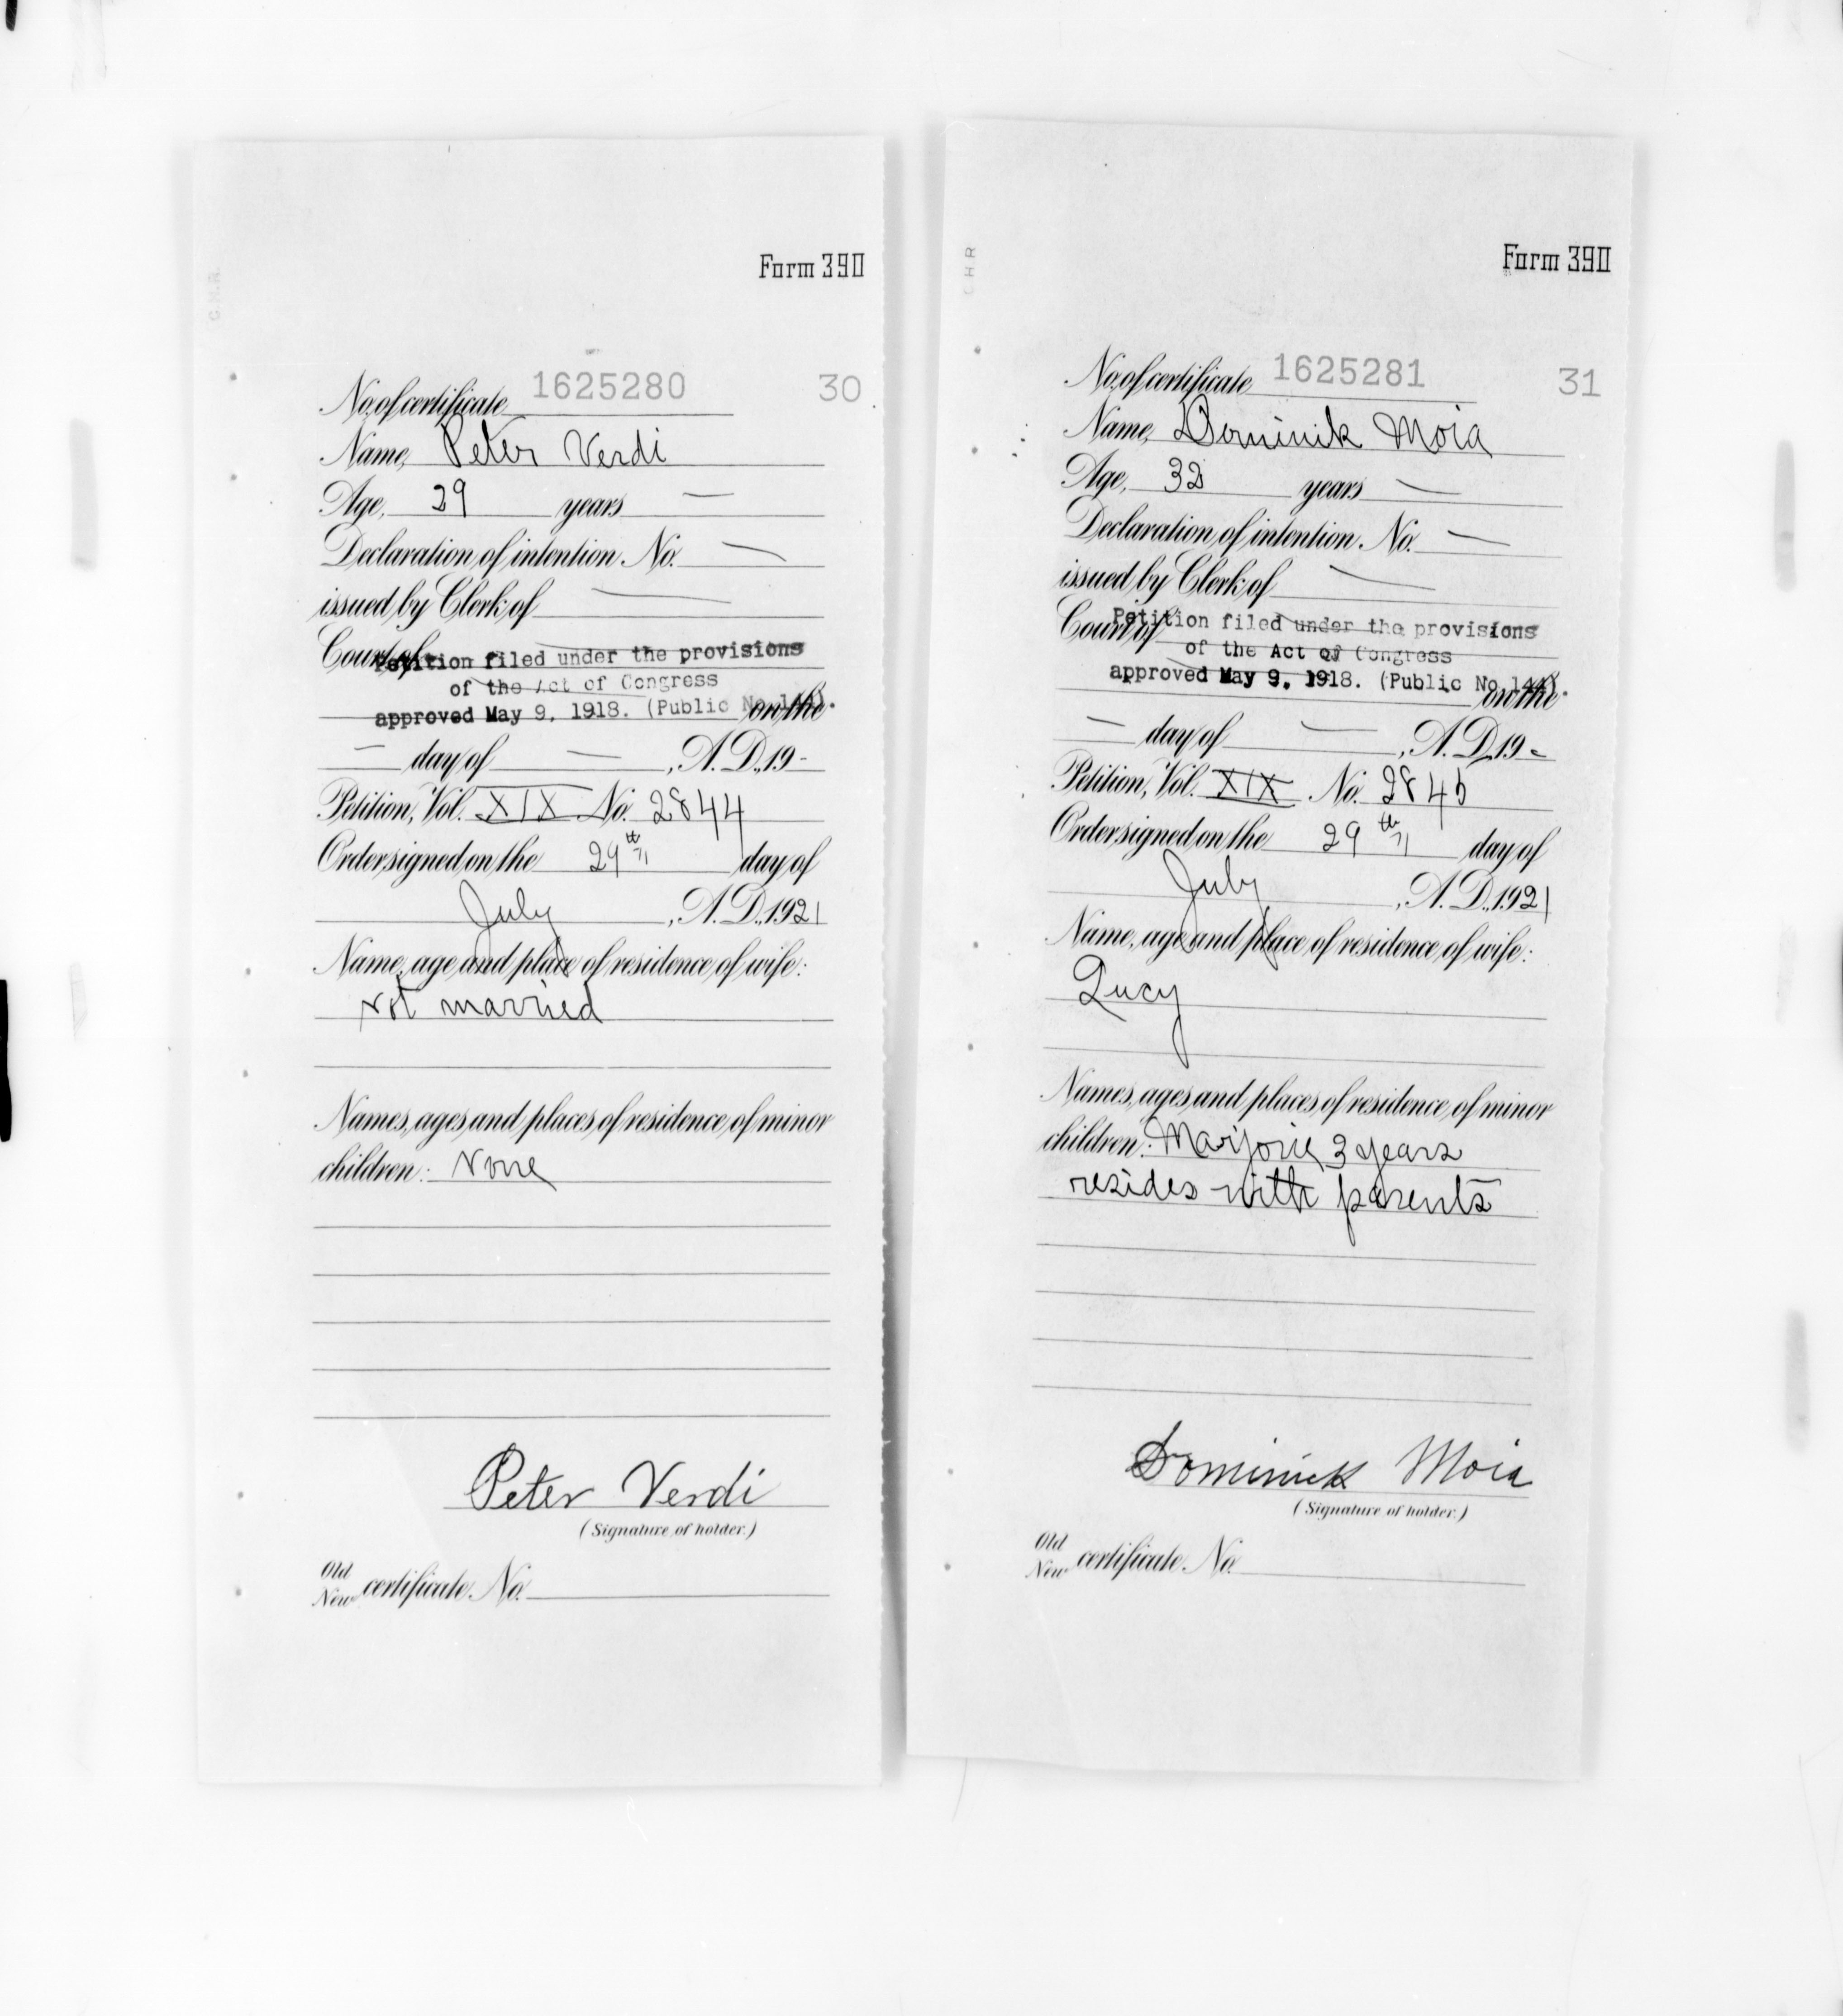 C.H.R.
Form 390
No. of certificate 1625280 30
Name, Peter Verdi
Age, 29 years —
Declaration of intention No. —
issued by Clerk of —
Court of Petition filed under the provisions
of the Act of Congress
approved May 9, 1918. (Public No. 144). on the
— day of — , A. D., 19 -
Petition, Vol. XIX No. 2844
Order signed on the 29th day of
July , A. D., 1921
Name, age and place of residence of wife:
Not married
Names, ages and places of residence of minor
children: None
Peter Verdi
(Signature of holder.)
Old
New certificate No.
C H R
Form 390
No. of certificate 1625281 31
Name, Dominik Moia
Age, 32 years —
Declaration of intention No. —
issued by Clerk of —
Court of Petition filed under the provisions
of the Act of Congress
approved May 9, 1918. (Public No. 144). on the
— day of — , A. D., 19 -
Petition, Vol. XIX No. 2845
Order signed on the 29th day of
July , A. D., 1921
Name, age and place of residence of wife:
Lucy
Names, ages and places of residence of minor
children: Marjorie 3 years
resides with parents
Dominick Moia
(Signature of holder.)
Old
New certificate No.